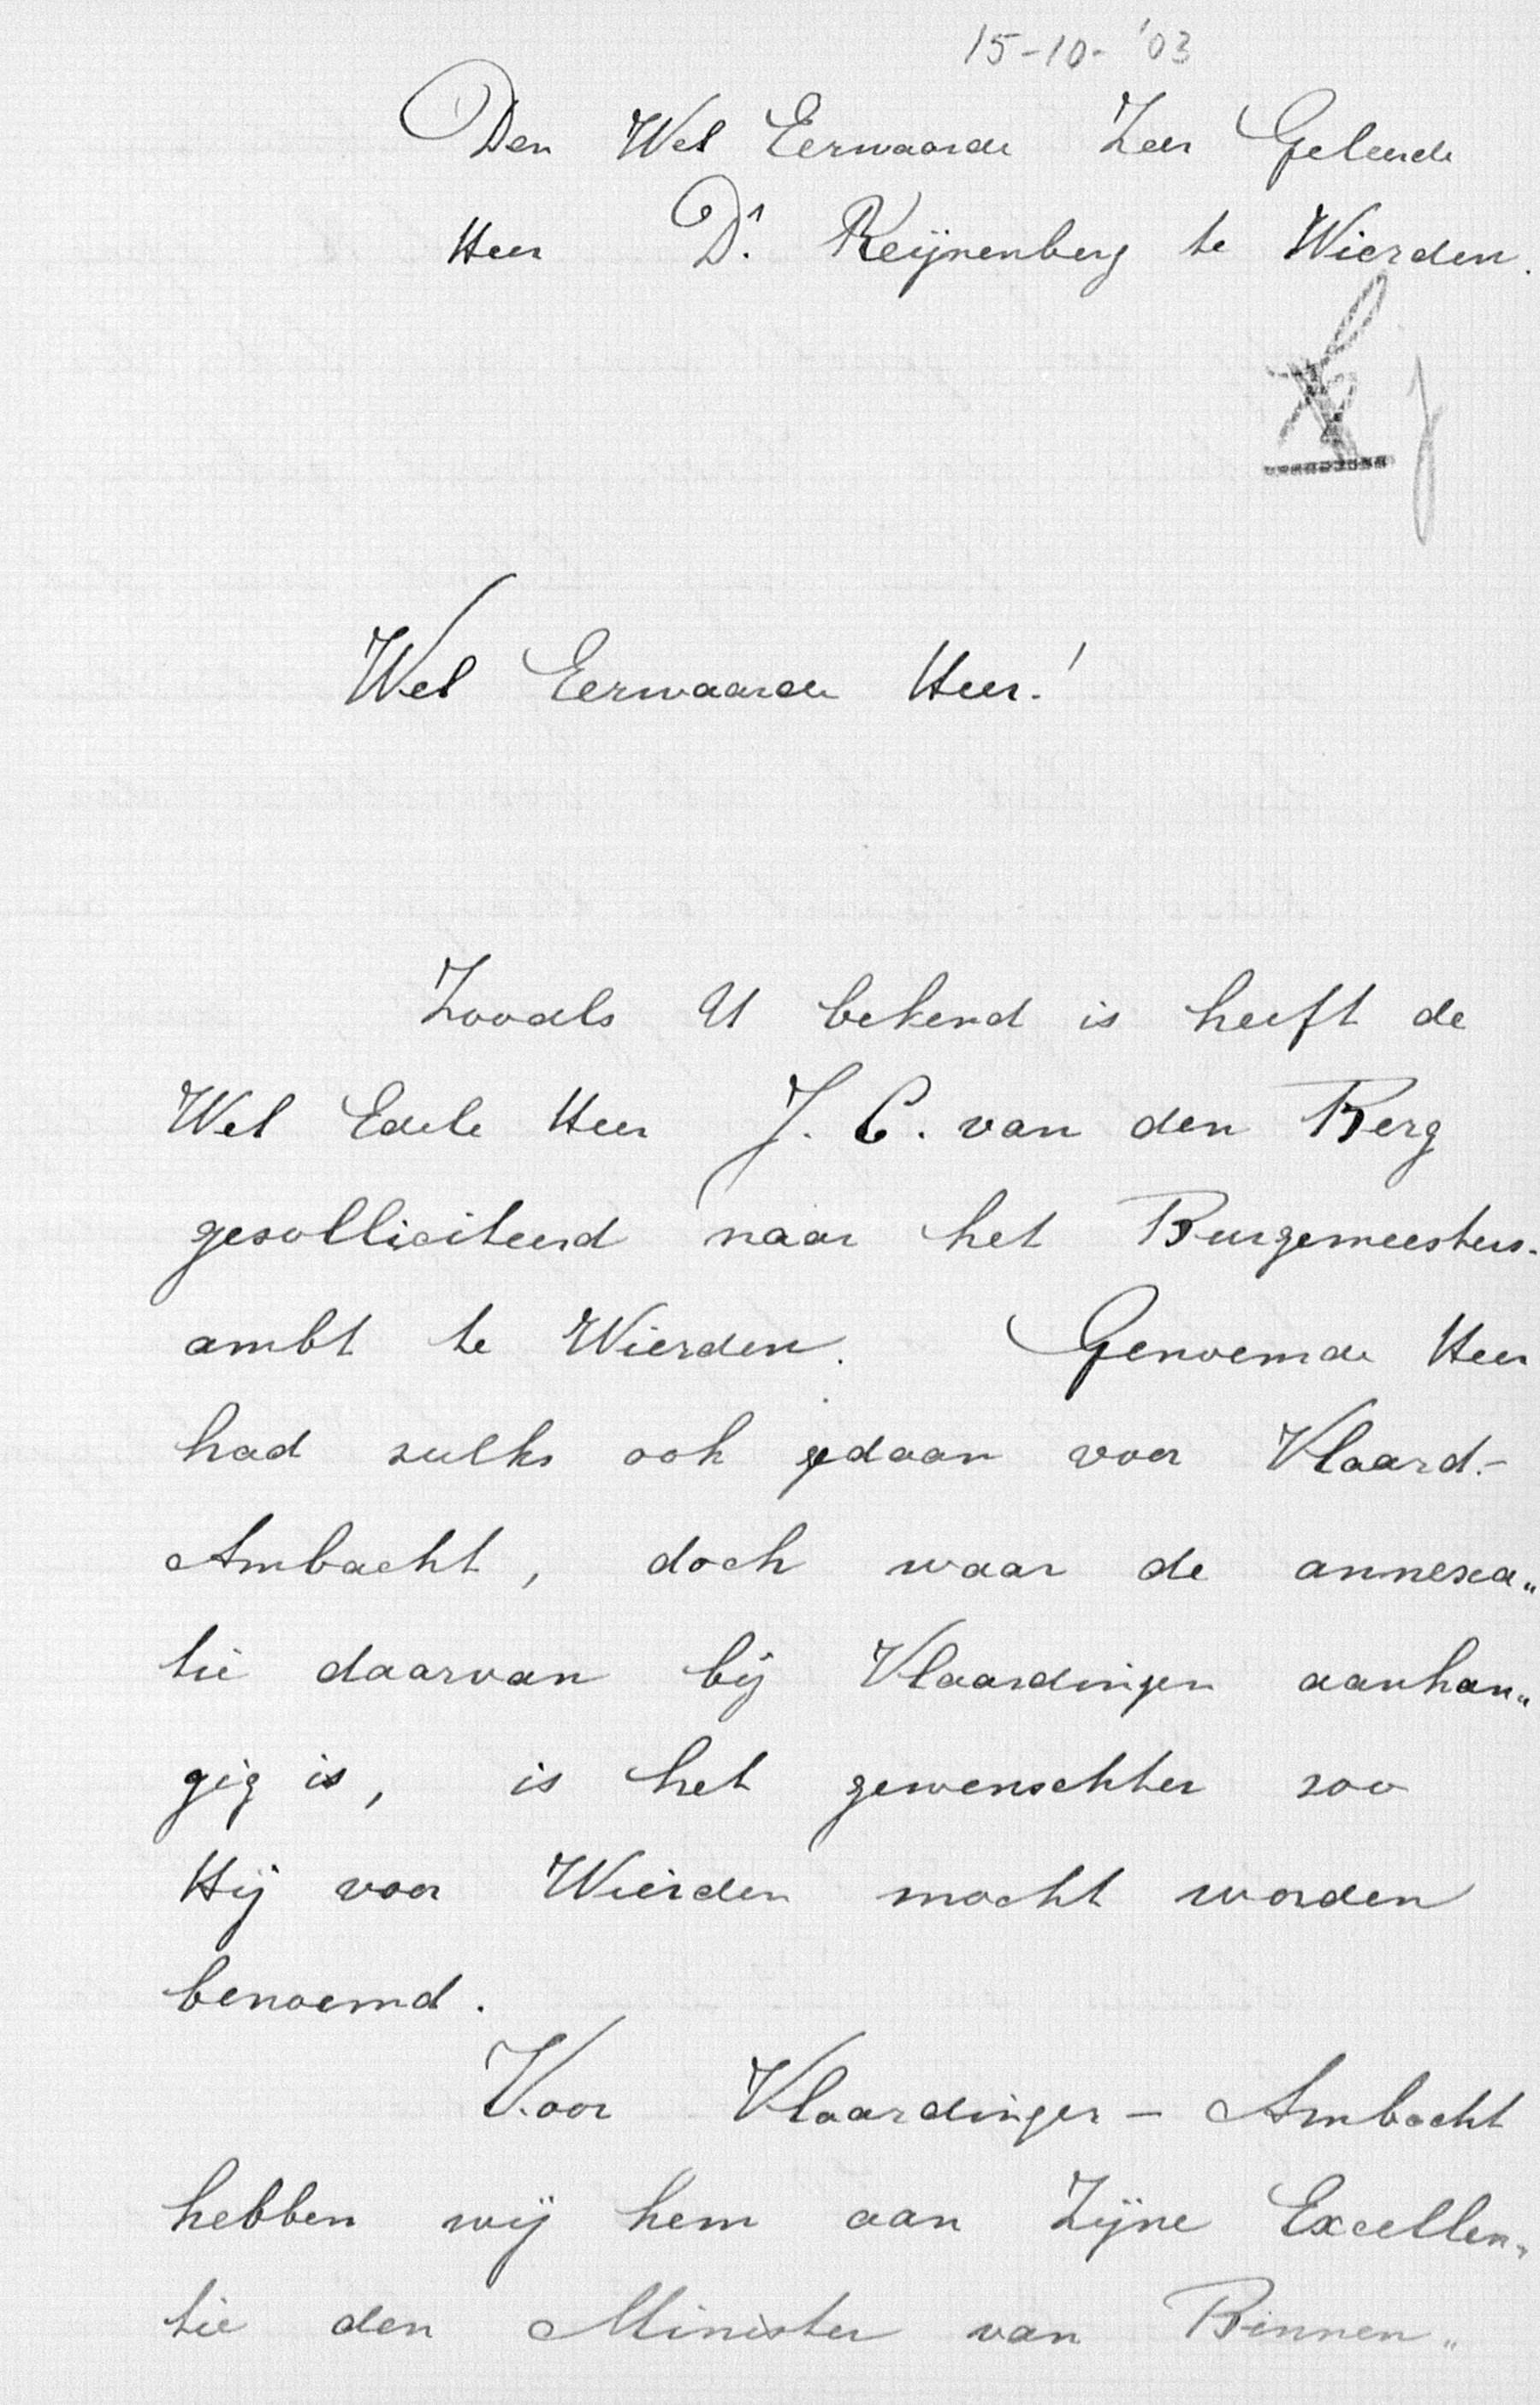 15-10-'03
Den Wel Eerwaarde Zeer Geleerde
Heer Dr. Reijnenberg te Wierden.
Wel Eerwaarde Heer!
Zooals U bekend is heeft de
Wel Edele Heer J. C. van den Berg
gesolliciteerd naar het Burgemeesters-
ambt te Wierden. Genoemde Heer
had zulks ook gedaan voor Vlaard.-
Ambacht, doch waar de annexa„
tie daarvan bij Vlaardingen aanhan„
gig is, is het gewenschter zoo
Hij voor Wierden mocht worden
benoemd.
Voor Vlaardinger - Ambacht
hebben wij hem aan Zijne Excellen„
tie den Minister van Binnen„